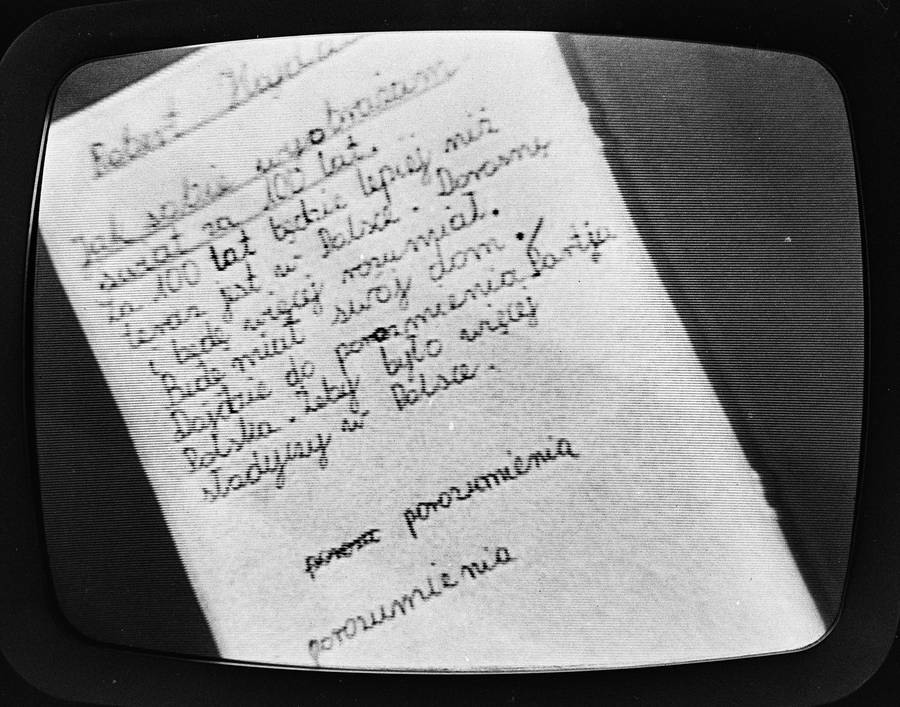 Robert Hajda
Jak sobie wyobrażam
świat za 100 lat.
Za 100 lat będzie lepiej niż
teraz jest w Polsce. Dorosnę
i będę więcej rozumiał.
Będe miał swój dom.
Dojdzie do porozmienia Partja
Polska. Żeby było więcej
słodyczy w Polsce.
porozumienia
porozumienia